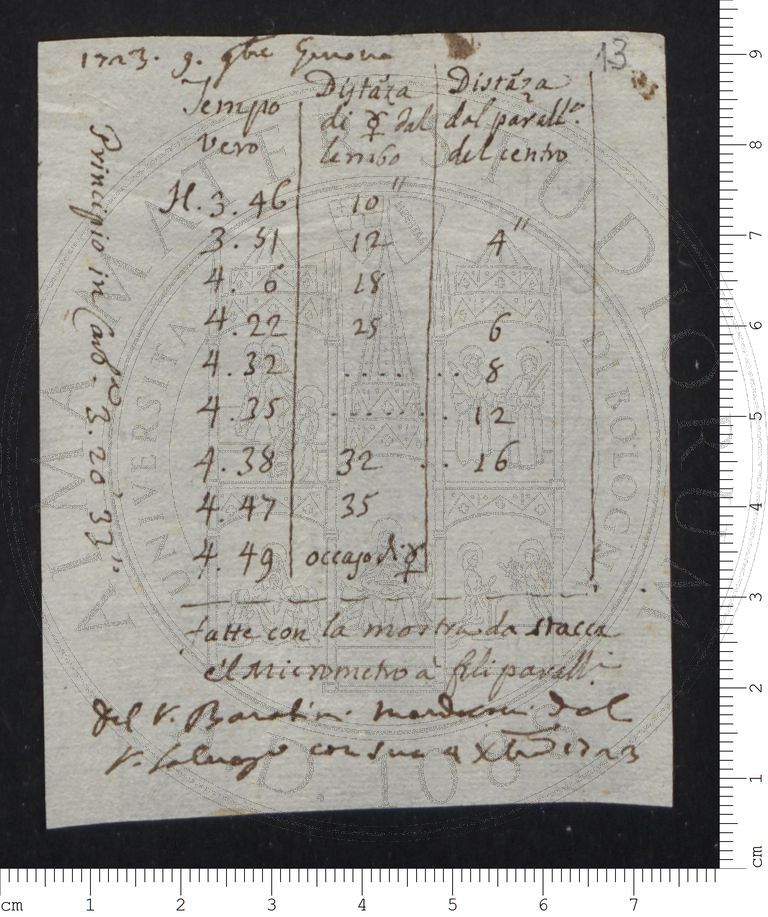 1723. 9. 9bre Genova
13
Tempo vero | Distāza di ☿ dal lembo | Distāza dal parall.º del centro
H. 3. 46 | 10''
3. 51 | 12 | 4''
4. 6 | 18
4. 22 | 25 | 6
4. 32 | ..... | 8
4. 35 | ..... | 12
4. 38 | 32 | 16
4. 47 | 35
4. 49 | occaso di ☿
Principio in 3. 20' 33''
fatte con la mostra da stacca
el Micrometro à fili parall.i
del P. dal
P. Salvago con sua 4 Xbre 1723
ALMA MATER STUDIORUM
UNIVERSITA DI BOLOGNA
A.D. 1088
cm 1 2 3 4 5 6 7
cm 1 2 3 4 5 6 7 8 9